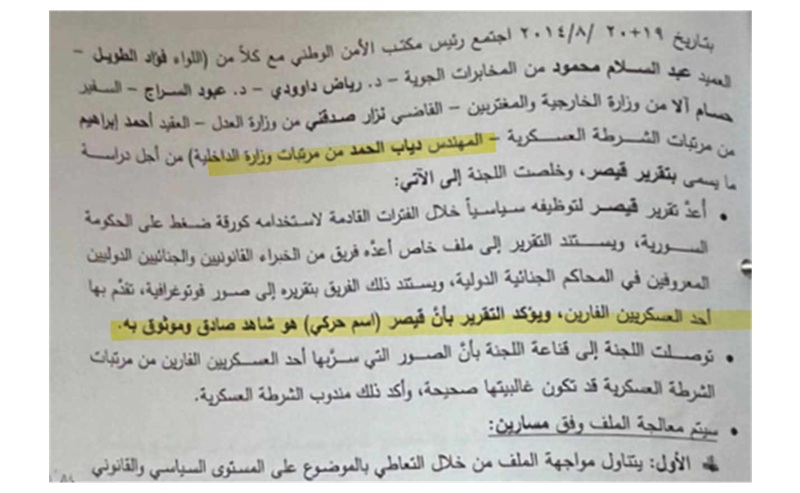 بتاريخ ١٩+٢٠ /٢٠١٤/٨ اجتمع رئيس مكتب الأمن الوطني مع كلاً من (اللواء فؤاد الطويل –
العميد عبد السلام محمود من المخابرات الجوية – د. رياض داوودي – د. عبود السراج – السفير
حسام آلا من وزارة الخارجية والمغتربين – القاضي نزار صدقني من وزارة العدل – العقيد أحمد إبراهيم
من مرتبات الشرطة العسكرية – المهندس دياب الحمد من مرتبات وزارة الداخلية) من أجل دراسة
ما يسمى بتقرير قيصر، وخلصت اللجنة إلى الآتي:
• أعدّ تقرير قيصر لتوظيفه سياسياً خلال الفترات القادمة لاستخدامه كورقة ضغط على الحكومة
السورية، ويستند التقرير إلى ملف خاص أعدّه فريق من الخبراء القانونيين والجنائيين الدوليين
المعروفين في المحاكم الجنائية الدولية، ويستند ذلك الفريق بتقريره إلى صور فوتوغرافية، تقدّم بها
أحد العسكريين الفارين، ويؤكد التقرير بأنّ قيصر (اسم حركي) هو شاهد صادق وموثوق به.
• توصلت اللجنة إلى قناعة اللجنة بأنّ الصور التي سرّبها أحد العسكريين الفارين من مرتبات
الشرطة العسكرية قد تكون غالبيتها صحيحة، وأكد ذلك مندوب الشرطة العسكرية.
• سيتم معالجة الملف وفق مسارين:
الأول: يتناول مواجهة الملف من خلال التعاطي بالموضوع على المستوى السياسي والقانوني